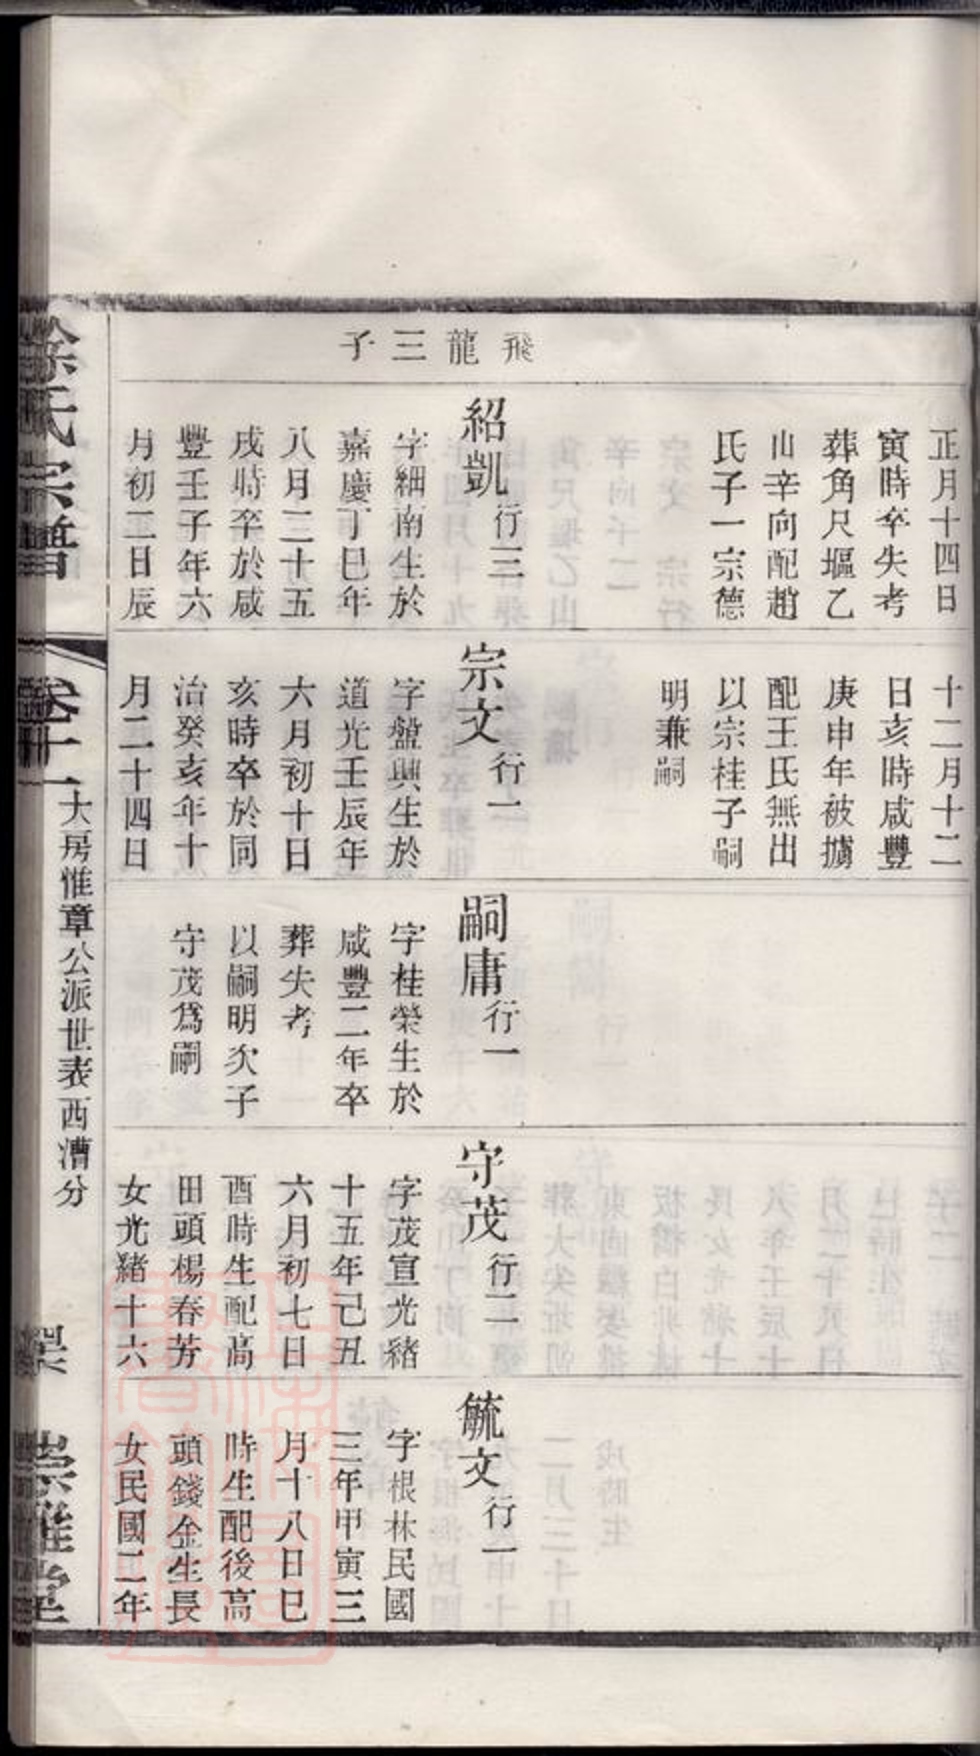 正月十四日
寅時卒失考
葬角尺塸乙
山辛向配趙
氏子一宗德
飛龍三子
紹凱行三
字細南生於
嘉慶丁巳年
八月二十五
戌時卒於咸
豐壬子年六
月初二日辰
十二月十二
日亥時咸豐
庚申年被擄
配王氏無出
以宗桂子嗣
明兼嗣
宗文行一
字盤興生於
道光壬辰年
六月初十日
亥時卒於同
治癸亥年十
月二十四日
嗣庸行一
字桂榮生於
咸豐二年卒
葬失考
以嗣明次子
守茂爲嗣
守茂行二
字茂宣光緒
十五年己丑
六月初七日
酉時生配高
田頭楊春芳
女光緒十六
毓文行一
字根林民國
三年甲寅三
月十八日巳
時生配後高
頭錢金生長
女民國二年
徐氏宗譜
卷十一
大房惟章公派世表西漕分
崇雅堂